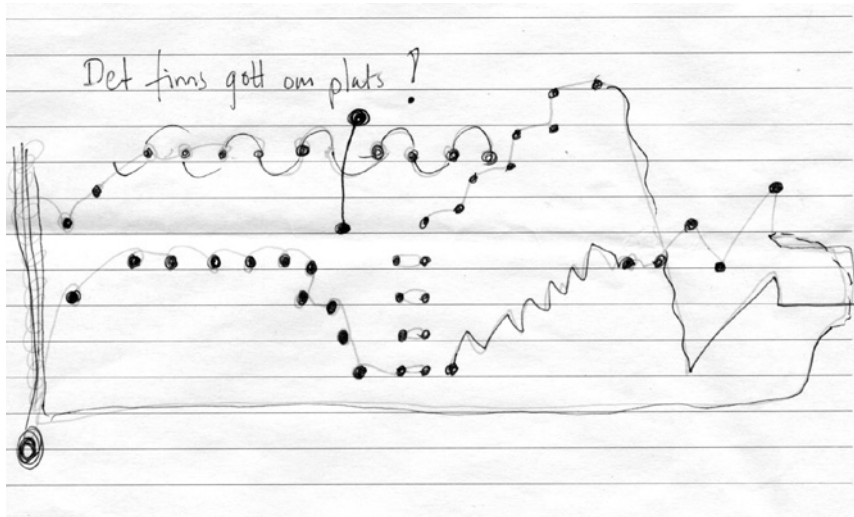 Det finns gott om plats!